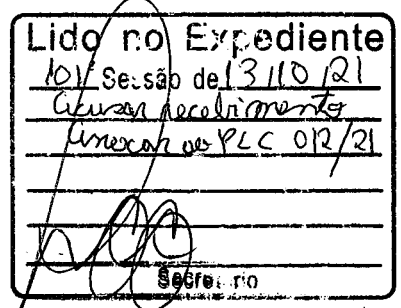 Lido no Expediente
101ª Sessão de 13/10/21
Acusar recebimento
Anexar ao PLC 012/21
Secretário